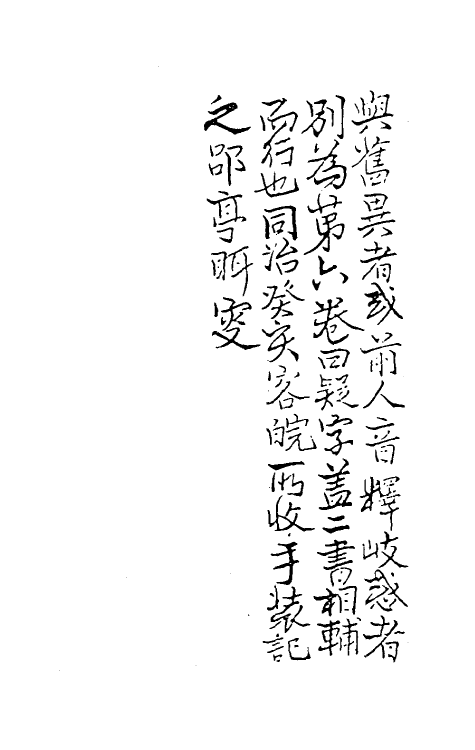 與舊異者或前人音釋歧惑者
別為苐六卷曰疑字盖二書相輔
而行也同治癸亥客皖所收手装記
之郘亭眲叟